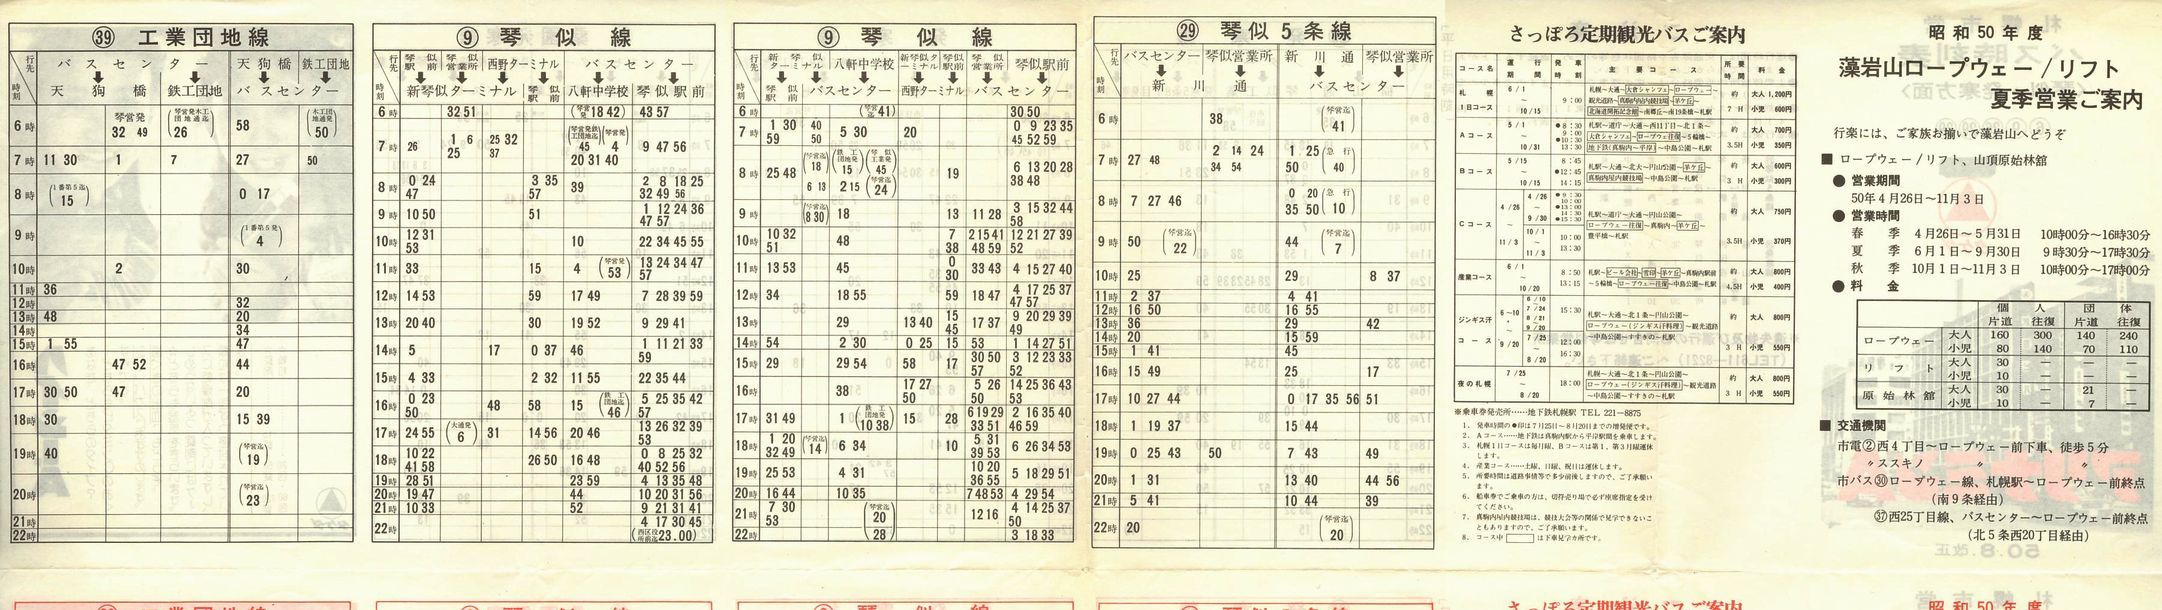 ㊴ 工業団地線
行先
時刻
バスセンター
天狗橋
鉄工団地
天狗橋
鉄工団地
バスセンター
6時 琴営発 32 49 (琴営発木工団地通迄 26) 58 (木工団地通発 50)
7時 11 30 1 7 27 50
8時 (1番第5迄 15) 0 17
9時 (1番第5発 4)
10時 2 30
11時 36
12時 32
13時 48 20
14時 34
15時 1 55 47
16時 47 52 44
17時 30 50 47 20
18時 30 15 39
19時 40 (琴営迄 19)
20時 (琴営迄 23)
21時
22時
⑨ 琴似線
行先
時刻
琴似駅前 琴似営業所 西野ターミナル バスセンター
新琴似ターミナル 琴似駅 八軒中学校 琴似駅前
6時 32 51 (琴営発 18 42) 43 57
7時 26 1 6 25 25 32 37 (琴営発鉄工団地迄 45) (琴営発 4) 20 31 40 9 47 56
8時 0 24 47 3 35 57 39 2 8 18 25 32 49 56
9時 10 50 51 1 12 24 36 47 57
10時 12 31 53 10 22 34 45 55
11時 33 15 4 (琴営発 53) 13 24 34 47 57
12時 14 53 59 17 49 7 28 39 59
13時 20 40 30 19 52 9 29 41
14時 5 17 0 37 46 1 11 21 33 59
15時 4 33 2 32 11 55 22 35 44
16時 0 23 50 48 58 15 (鉄工団地迄 46) 5 25 35 42 57
17時 24 55 (大通発 6) 31 14 56 20 46 13 26 32 39 53
18時 10 22 41 58 26 50 16 48 0 8 25 32 40 52 56
19時 28 51 23 59 4 13 35 48
20時 19 47 44 10 20 31 56
21時 10 33 52 9 21 31 41
22時 4 17 30 45 (西区役所前迄 23.00)
⑨ 琴似線
行先
時刻
新琴似ターミナル 琴似駅 八軒中学校 新琴似ターミナル 琴似駅前 琴似営業所 琴似駅前
バスセンター 西野ターミナル バスセンター
6時 (琴営迄 41) 30 50
7時 1 30 59 40 50 5 30 20 0 9 23 35 45 52 59
8時 25 48 (琴営迄 18) 6 13 (鉄工団地発 15) (琴似工業発 45) 2 15 (琴営迄 24) 19 6 13 20 28 38 48
9時 (琴営迄 8 30) 18 13 11 28 3 15 32 44 58
10時 10 32 51 48 7 38 2 15 41 48 59 12 21 27 39 52
11時 13 53 45 0 30 33 43 4 15 27 40
12時 34 18 55 59 18 47 4 17 25 37 47 57
13時 29 13 40 15 45 17 37 9 20 29 39 49
14時 54 2 30 0 25 15 53 1 14 27 51
15時 29 29 54 58 17 30 50 57 3 12 23 33 52
16時 38 17 27 50 5 26 50 14 25 36 43 53
17時 31 49 1 (鉄工団地発 10 38) 15 28 6 19 29 33 51 2 16 35 40 46 59
18時 1 20 32 49 (琴営迄 14) 6 34 10 5 31 39 53 6 26 34 53
19時 25 53 4 31 10 20 36 55 5 18 29 51
20時 16 44 10 35 7 48 53 4 29 54
21時 7 30 53 (琴営迄 20) 12 16 4 14 25 37 50
22時 28 3 18 33
㉙ 琴似5条線
行先
時刻
バスセンター 琴似営業所 新川通 琴似営業所
新川通 バスセンター
6時 38 (琴営迄 41)
7時 27 48 2 14 24 34 54 1 25 50 (急行 40)
8時 7 27 46 0 20 35 50 (急行 10)
9時 50 (琴営迄 22) 44 (琴営迄 7)
10時 25 29 8 37
11時 2 37 4 41
12時 16 50 16 55
13時 36 29 42
14時 20 15 59
15時 1 41 45
16時 15 49 25 17
17時 10 27 44 0 17 35 56 51
18時 1 19 37 15 44
19時 0 25 43 50 7 43 49
20時 1 31 13 40 44 56
21時 5 41 10 44 39
22時 20 (琴営迄 20)
さっぽろ定期観光バスご案内
コース名 運行期間 発車時刻 主要コース 所要時間 料金
札幌1日コース 6/1～10/15 9:00 札幌～大通～大倉シャンツェ～ロープウェー～観光道路～真駒内屋内競技場～羊ケ丘～北海道開拓記念館～南郷丘～南19条橋～札駅 約7H 大人1,200円 小児600円
Aコース 5/1～10/31 約3.5H 大人700円 小児350円
Bコース 5/15～10/15 8:45 12:45 14:15 札駅～大通～北大～円山公園～羊ケ丘～真駒内屋内競技場～中島公園～札駅 約3H 大人600円 小児300円
Cコース 4/26～11/3 札駅～大通～円山公園～ロープウェー往復～真駒内～羊ケ丘～豊平橋～札駅 約3.5H 大人750円 小児370円
産業コース 6/1～10/20 8:50 13:15 約4.5H 大人800円 小児400円
ジンギス汗コース 15:30 16:30 札駅～大通～円山公園～ロープウェー(ジンギス汗料理)～観光道路～中島公園～すすきの～札駅 約3H 大人800円 小児550円
夜の札幌 7/25～8/20 18:00 札幌～大通～北1条～円山公園～ロープウェー(ジンギス汗料理)～観光道路～中島公園～すすきの～札駅 約3H 大人800円 小児550円
※乗車券発売所……地下鉄札幌駅 TEL 221-8875
1. 発車時間の●印は7月25日～8月20日までの増発便です。
2. Aコース……地下鉄は真駒内駅から平岸駅間を乗車します。
3. 札幌1日コースは毎月曜、Bコースは第1、第3月曜運休します。
4. 産業コース……土曜、日曜、祝日は運休します。
5. 所要時間は道路事情等で多少前後しますので、ご了承願います。
6. 船車券でご乗車の方は、切符売り場で必ず座席指定を受けてください。
7. 真駒内屋内競技場は、競技大会等の関係で見学できないこともありますので、ご了承願います。
8. コース中　　は下車見学カ所です。
昭和50年度
藻岩山ロープウェー/リフト
夏季営業ご案内
行楽には、ご家族お揃いで藻岩山へどうぞ
■ ロープウェー/リフト、山頂原始林館
● 営業期間
50年4月26日～11月3日
● 営業時間
春季 4月26日～5月31日 10時00分～16時30分
夏季 6月1日～9月30日 9時30分～17時30分
秋季 10月1日～11月3日 10時00分～17時00分
● 料金
個人 団体
片道 往復 片道 往復
ロープウェー 大人 160 300 140 240
小児 80 140 70 110
リフト 大人 30 — — —
小児 10 — — —
原始林館 大人 30 — 21 —
小児 10 — 7 —
■ 交通機関
市電②西4丁目～ロープウェー前下車、徒歩5分
〃ススキノ 〃 〃
市バス㉚ロープウェー線、札幌駅～ロープウェー前終点
(南9条経由)
㊲西25丁目線、バスセンター～ロープウェー前終点
(北5条西20丁目経由)
50.8.改正
さっぽろ定期観光バスご案内
昭和50年度